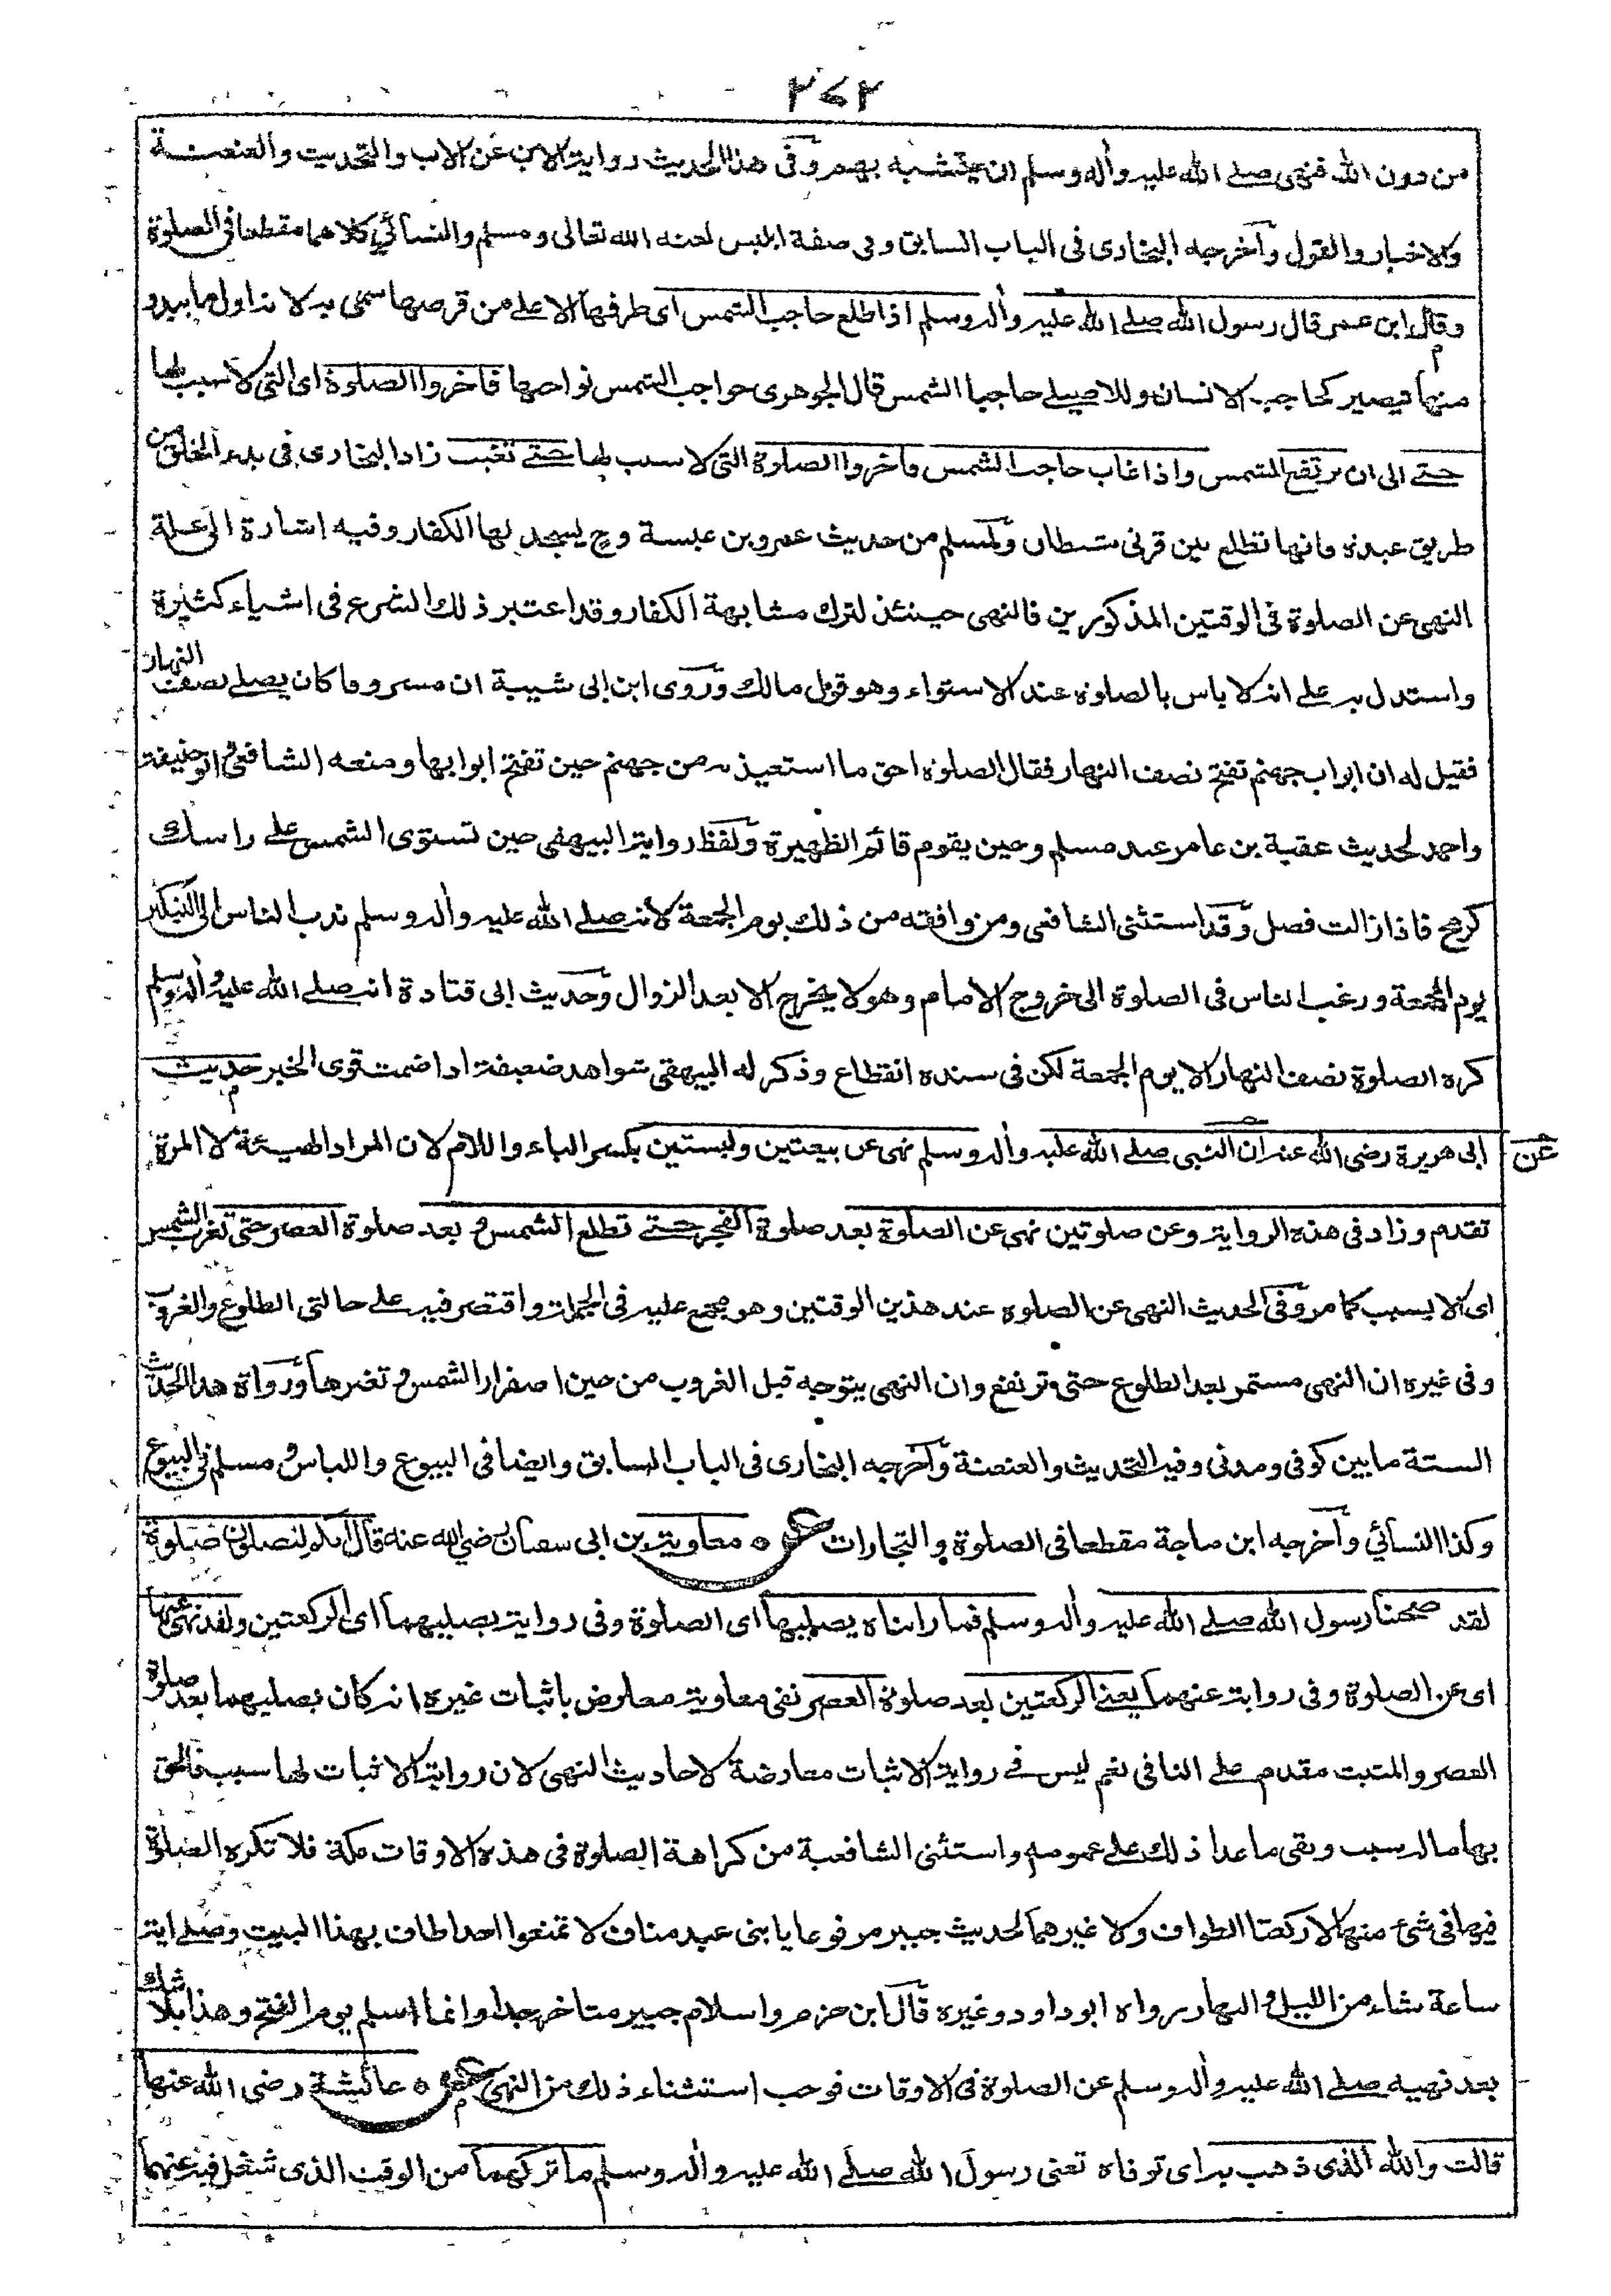 ٢٧٢
من دون الله فنهى صلے الله عليه وأله وسلم ان يتشبه بهم وفى هذا الحديث رواية الابن عن الاب والتحديث والعنعنة
والاخبار والقول وأخرجه البخارى فى الباب السابق وفى صفة ابليس لعنه الله تعالى ومسلم والنسائى كلاهما مقطعا فى الصلوة
وقال ابن عمر قال رسول الله صلے الله عليه وأله وسلم اذا طلع حاجب الشمس اى طرفها الاعلى من قرصها سمى به لانه اول ما يبدو
منها فيصير كحاجب الانسان وللاصيلے حاجبا الشمس قال الجوهرى حواجب الشمس نواحيها فاخروا الصلوة اى التى لا سبب لها
حتے الى ان ترتفع الشمس واذا غاب حاجب الشمس فاخروا الصلوة التى لا سبب لها حتے تغيب زاد البخارى فى بدء الخلق من
طريق عبدة فانها تطلع بين قرنى شيطان ولمسلم من حديث عمرو بن عبسة وح يسجد لها الكفار وفيه اشارة الى علة
النهى عن الصلوة فى الوقتين المذكورين فالنهى حينئذ لترك مشابهة الكفار وقد اعتبر ذلك الشرع فى اشياء كثيرة
واستدل به على انه لا باس بالصلوة عند الاستواء وهو قول مالك وروى ابن ابى شيبة ان مسروقا كان يصلے نصف النهار
فقيل له ان ابواب جهنم تفتح نصف النهار فقال الصلوة احق ما استعيذ به من جهنم حين تفتح ابوابها ومنعه الشافعى وابو حنيفة
واحمد لحديث عقبة بن عامر عند مسلم وحين يقوم قائم الظهيرة ولفظ رواية البيهقى حين تستوى الشمس على راسك
كرمح فاذا زالت فصل وقد استثنى الشافعى ومن وافقه من ذلك يوم الجمعة لانه صلے الله عليه وأله وسلم ندب الناس الى التبكير
يوم الجمعة ورغب الناس فى الصلوة الى خروج الامام وهو لا يخرج الا بعد الزوال وحديث ابى قتادة انه صلے الله عليه وأله وسلم
كره الصلوة نصف النهار الا يوم الجمعة لكن فى سنده انقطاع وذكر له البيهقى شواهد ضعيفة اذا ضمت قوى الخبر حديث
عن ابى هريرة رضى الله عنه ان النبى صلے الله عليه وأله وسلم نهى عن بيعتين ولبستين بكسر الباء واللام لان المراد الهيئة لا المرة
تقدم وزاد فى هذه الرواية وعن صلوتين نهى عن الصلوة بعد صلوة الفجر حتے تطلع الشمس و بعد صلوة العصر حتى تغرب الشمس
اى الا بسبب كما مر وفى الحديث النهى عن الصلوة عند هذين الوقتين وهو مجمع عليه فى الجملة واقتصر فيه على حالتى الطلوع والغروب
وفى غيره ان النهى مستمر بعد الطلوع حتى ترتفع وان النهى يتوجه قبل الغروب من حين اصفرار الشمس و تغيرها ورواة هذا الحديث
الستة ما بين كوفى ومدنى وفيه التحديث والعنعنة وأخرجه البخارى فى الباب السابق وايضا فى البيوع واللباس و مسلم فى البيوع
وكذا النسائي وأخرجه ابن ماجة مقطعا فى الصلوة والتجارات عن معاوية بن ابى سفيان رضي الله عنه قال انكم لتصلون صلوة
لقد صحبنا رسول الله صلے الله عليه وأله وسلم فما رايناه يصليها اى الصلوة وفى رواية يصليهما اى الركعتين ولقد نهى عنها
اى عن الصلوة وفى رواية عنهما يعنے الركعتين بعد صلوة العصر نفى معاوية معارض باثبات غيره انه كان يصليهما بعد صلوة
العصر والمثبت مقدم على النافى نعم ليس فے رواية الاثبات معارضة لاحاديث النهى لان رواية الاثبات لها سبب فالحق
بها ماله سبب وبقى ما عدا ذلك على عمومه واستثنى الشافعية من كراهة الصلوة فى هذه الاوقات مكة فلا تكره الصلوة
فيها فى شئ منها لا ركعتا الطواف ولا غيرهما لحديث جبير مرفوعا يا بنى عبد مناف لا تمنعوا احدا طاف بهذا البيت وصلے اية
ساعة شاء من الليل و النهار رواه ابو داود وغيره قال ابن حزم واسلام جبير متاخر جدا وانما اسلم يوم الفتح وهذا بلا شك
بعد نهيه صلے الله عليه وأله وسلم عن الصلوة فى الاوقات فوجب استثناء ذلك من النهى عن عائشة رضى الله عنها
قالت والله الذى ذهب به اى توفاه تعنى رسول الله صلے الله عليه وأله وسلم ما تركهما من الوقت الذى شغل فيه عنهما